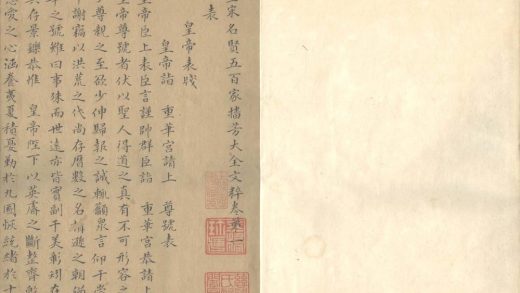 宋名賢五百家播芳大全文粹卷第一
表
皇帝表牋
皇帝詣 重華宮請上 尊號表
皇帝臣上表臣言謹帥群臣詣 重華宮恭請上
皇帝尊號者伏以聖人得道之真有不可形容之
尊親之至欲少伸歸報之誠輒籲衆言仰干
謝竊以洪荒之代尚存曆數之名揖遜之朝
之號雖曰事殊而世遠亦皆實副千美彰矧在
存景鑠恭惟 皇帝陛下以英睿之斷整齊
愛之心涵養夷夏積憂勤於九國恢統緒於十